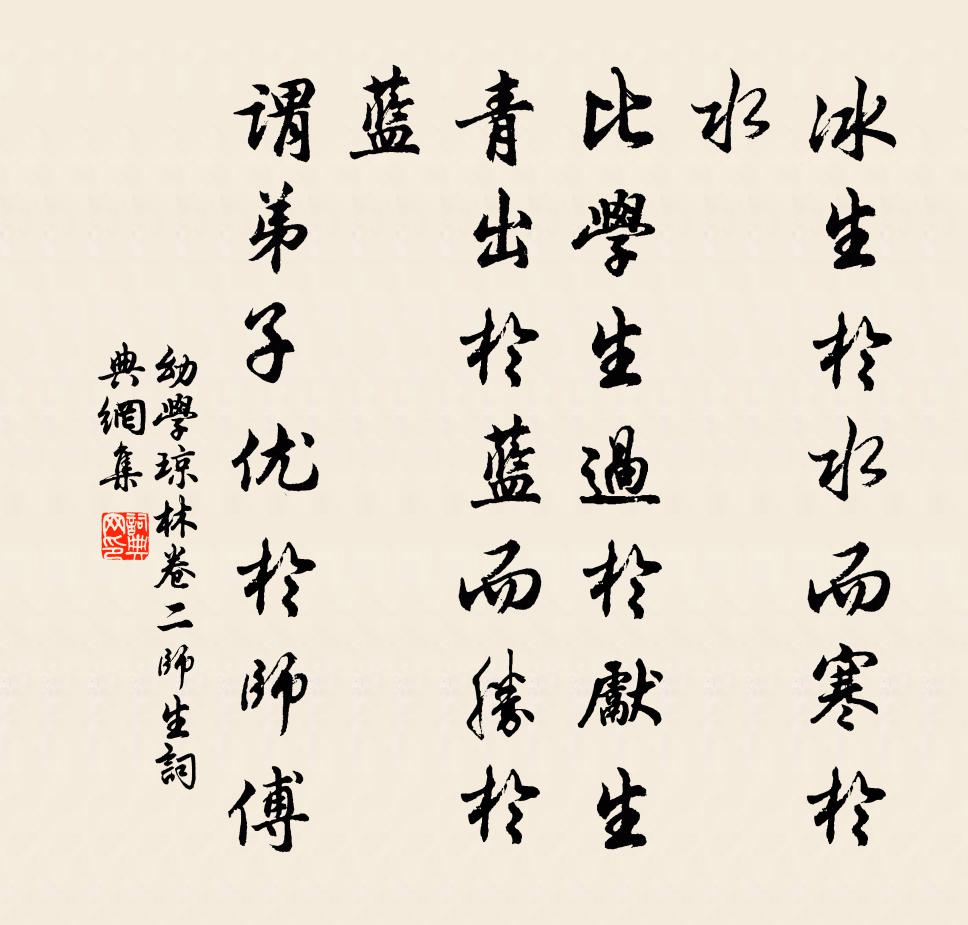 冰生於水而寒於
水
比學生過於獻生
青出於藍而勝於
藍
謂弟子优於師傅
幼學琼林卷二師生詞
典網集
詞典網印